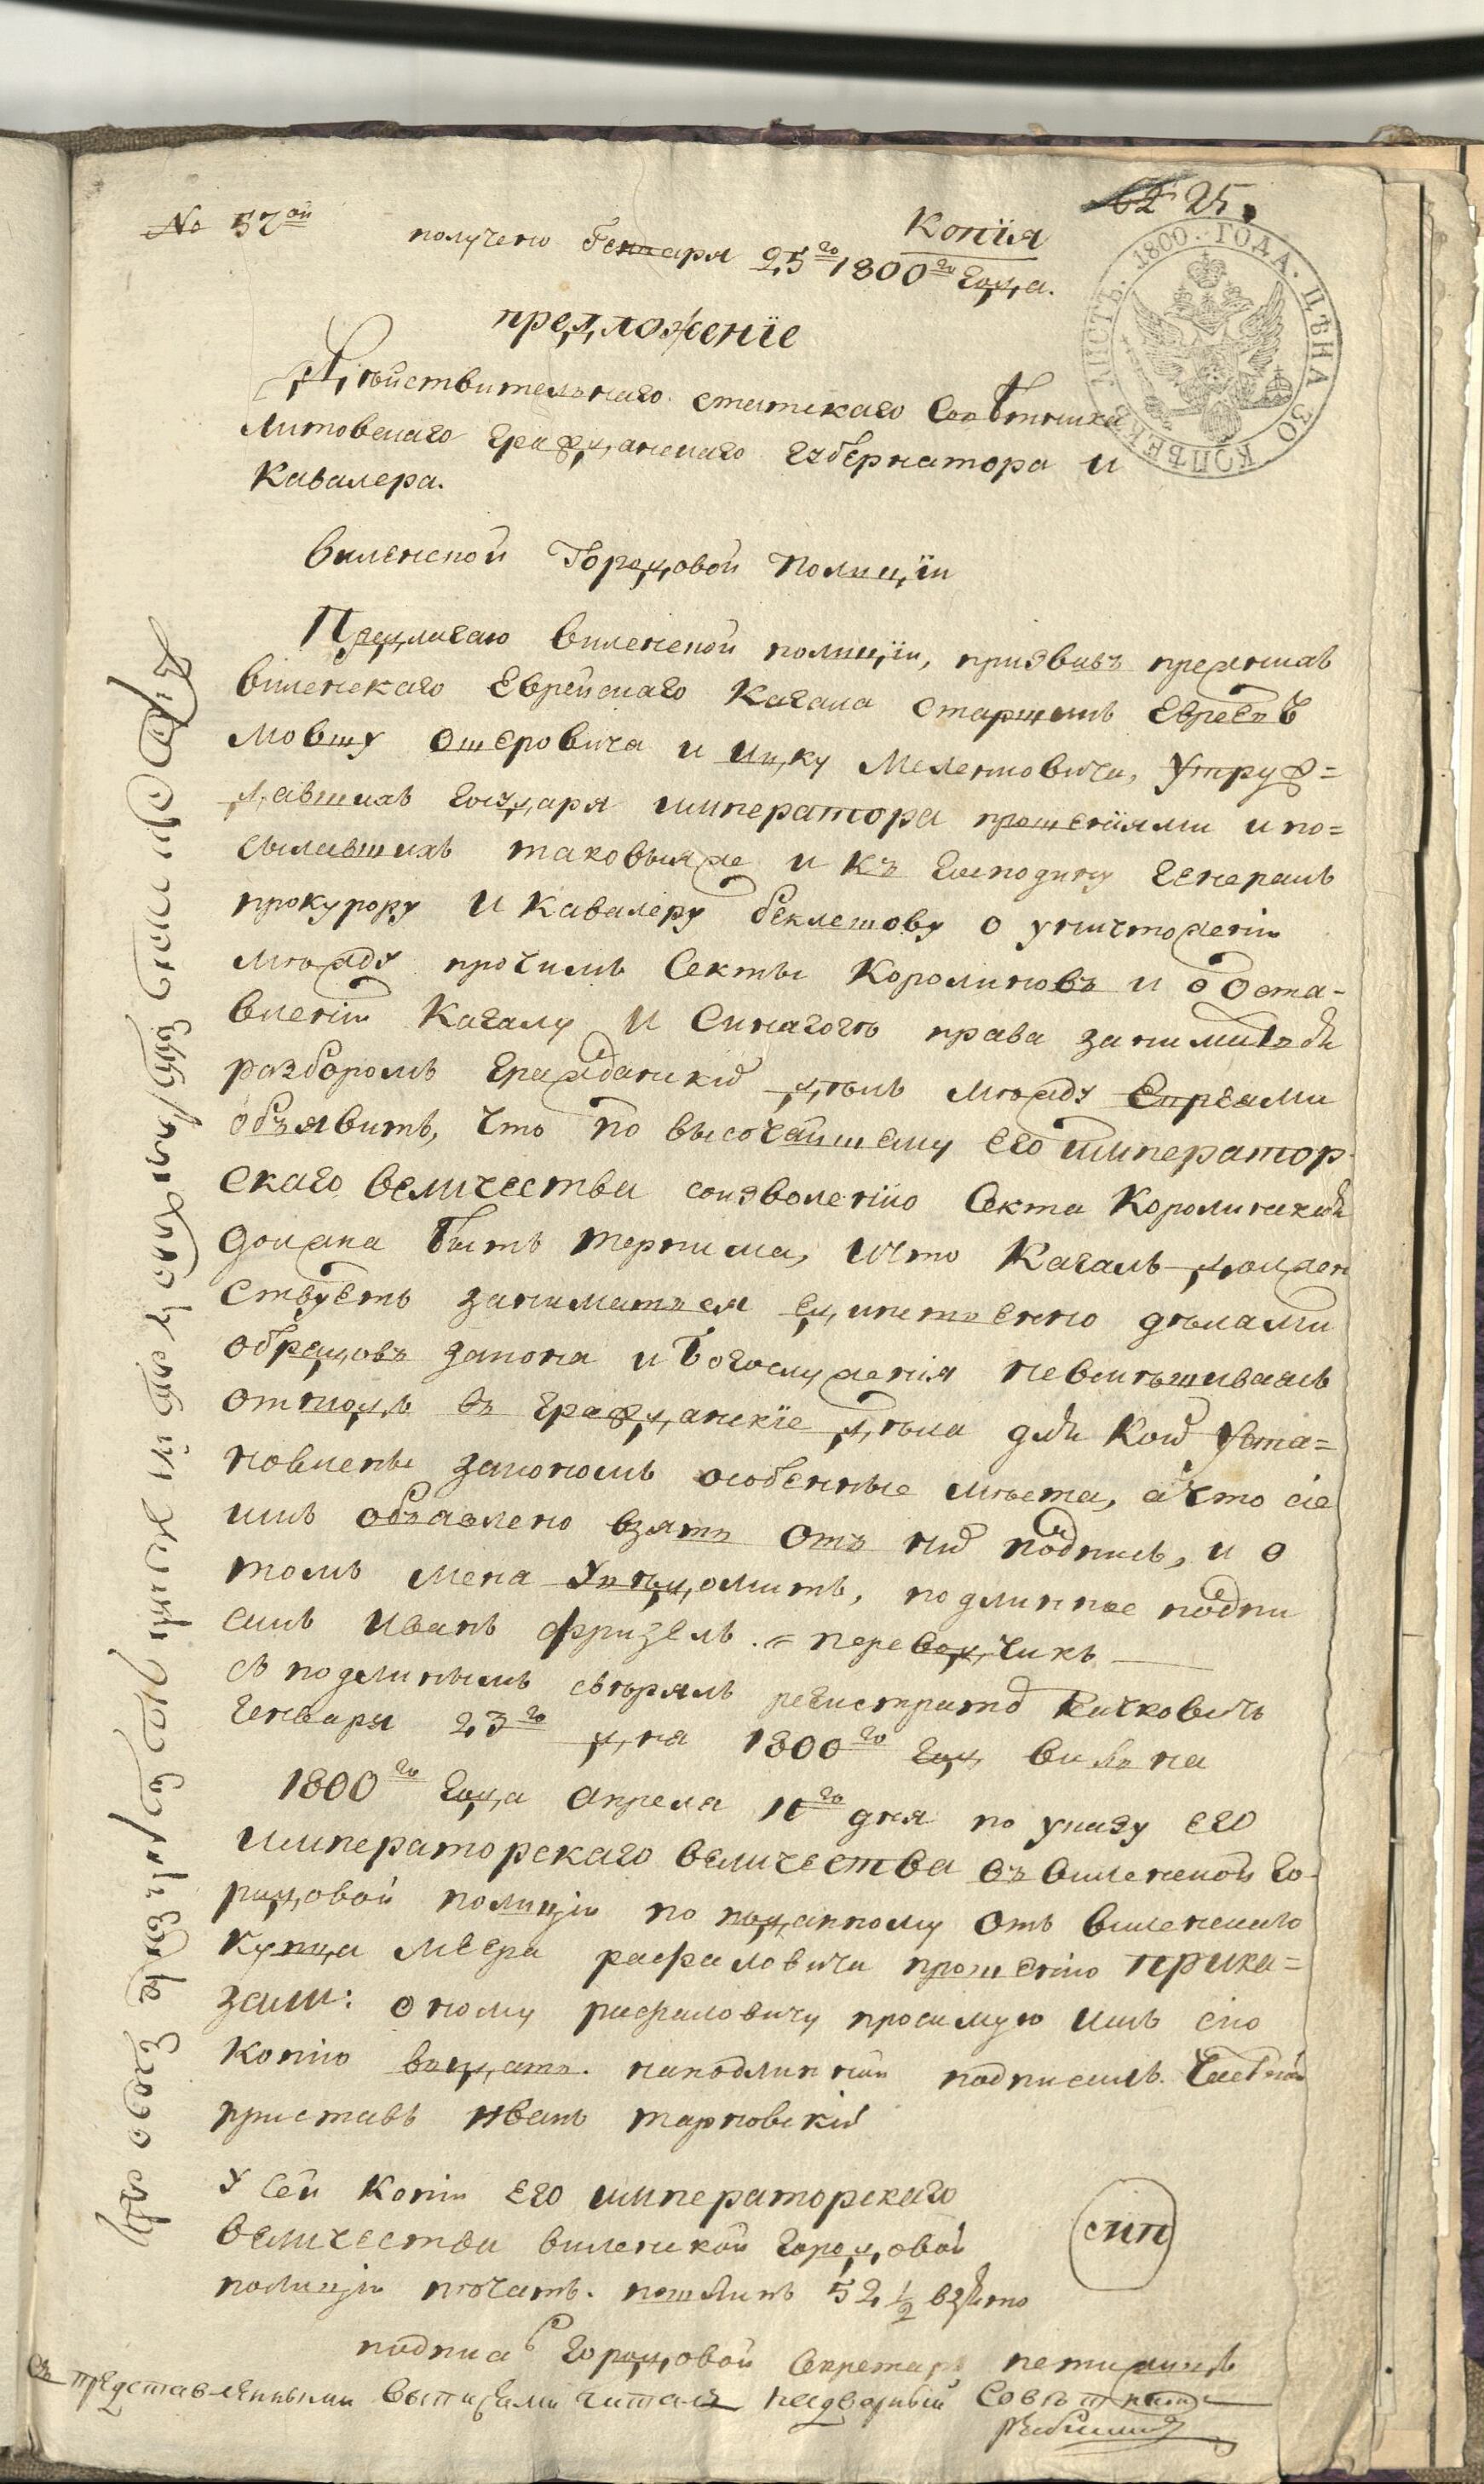 № 57ой
62 25.
Копія
получено Генваря 25го 1800го Года.
ЛИСТЪ. 1800. ГОДА. ЦѢНА 30 КОПѢЕКЪ
предложеніе
Дѣйствительнаго статскаго Совѣтника
Литовскаго гражданскаго губернатора и
Кавалера.
Виленской Городовой Полиціи
Предлагаю Виленской полиціи, призвавъ прежнихъ
Виленскаго Еврейскаго Кагала старшинъ Евреевъ
Мовшу Ошеровича и Ицку Мелентовича, утруж=
давшихъ Государя императора прошеніями и по=
сылавшихъ таковыя же и къ Господину Генералъ
прокурору и Кавалеру беклешову о уничтоженіи
между прочимъ Секты Королиновъ и о оста-
вленіи Кагалу и Синагогѣ права заниматься
разборомъ гражданскихъ дѣлъ между Евреями
объявить, что по высочайшему его император
скаго величества соизволенію Секта Королинская
должна быть терпима, и что Кагалъ должен
ствуетъ заниматься единственно дѣлами
обрядовъ закона и богослуженія невмѣшиваясь
отнюдь въ гражданскіе дѣла для коихъ уста=
новлены закономъ особенные мѣста, а что сіе
имъ объявлено взять отъ нихъ подпись, и о
томъ меня увѣдомить, подлинное подпи
салъ Иванъ Фризель. = переводчикъ
съ подлиннымъ свѣрялъ регистраторъ Кичковичъ
Генваря 23го дня 1800го года Вильна
1800го Года апреля 11го дня по указу его
императорскаго величества въ виленской го-
родовой полиціи по поданному отъ виленскаго
купца Меера рафаловича прошенію прика=
зали: оному рафаловичу просимую имъ сію
копію выдать. на подлинной подписалъ. Частной
приставъ иванъ тарновскій
У сей копіи его императорскаго
величества виленской городовой
полиціи печать. пошлинъ 52 1/2 взято
смп
подписа городовой Секретарь
Съ представленными выписями читалъ надворный Совѣтникъ